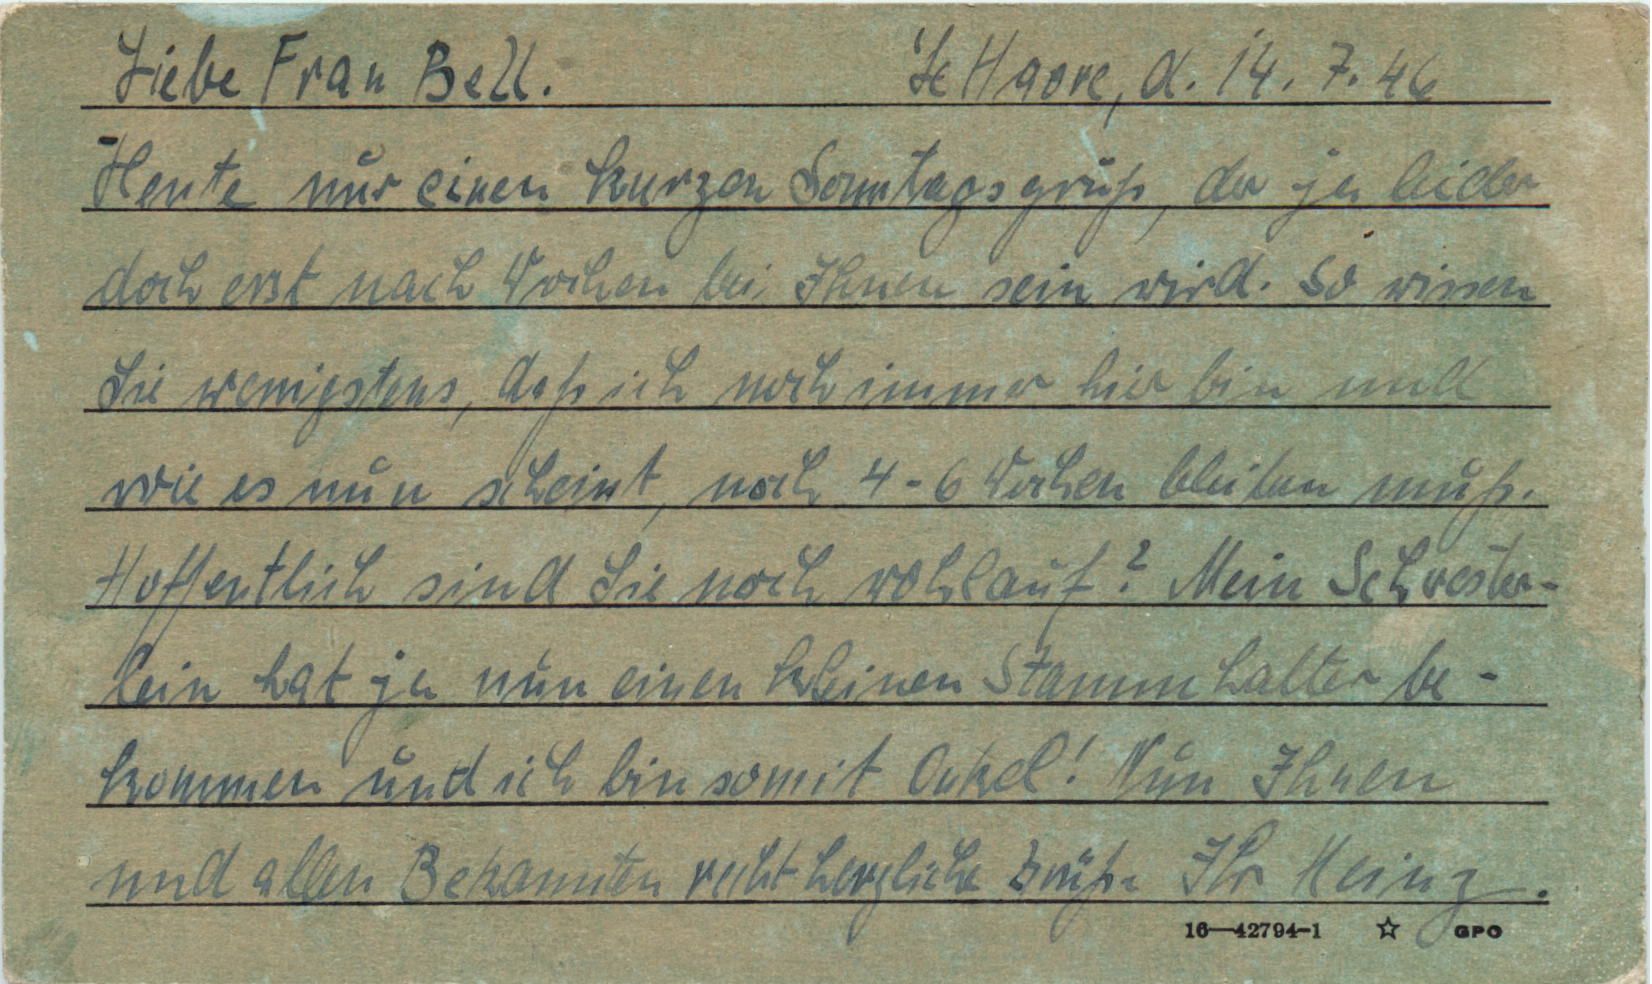 Liebe Frau Bell. Le Havre, d. 14. 7. 46
Heute nur einen kurzen Sonntagsgruß, der ja leider
doch erst nach Wochen bei Ihnen sein wird. So wissen
Sie wenigstens, daß ich noch immer hier bin und
wie es nun scheint, noch 4-6 Wochen bleiben muß.
Hoffentlich sind Sie noch wohlauf? Mein Schwester-
lein hat ja nun einen kleinen Stammhalter be-
kommen und ich bin somit Onkel! Nun Ihnen
und allen Bekannten recht herzliche Grüße Ihr Heinz.
16—42794-1 ☆ GPO